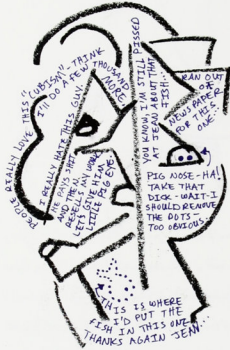 PEOPLE REALLY LOVE THIS "CUBISM"-THINK
I'LL DO A FEW THOUSAND
MORE.
I REALLY HATE THIS GUY.
HE PAYS SHIT
AND THEN
RESELLS MY WORK.
LET'S GIVE HIM A
LITTLE PIG EYE.
YOU KNOW, I'M STILL PISSED
AT JEAN ABOUT THAT
FISH...
RAN OUT
OF
NEWSPAPER
FOR THIS
ONE.
PIG NOSE-HA!
TAKE THAT
DICK-WAIT-I
SHOULD REMOVE
THE DOTS-
TOO OBVIOUS.
THIS IS WHERE
I'D PUT THE
FISH IN THIS ONE
THANKS AGAIN JEAN.